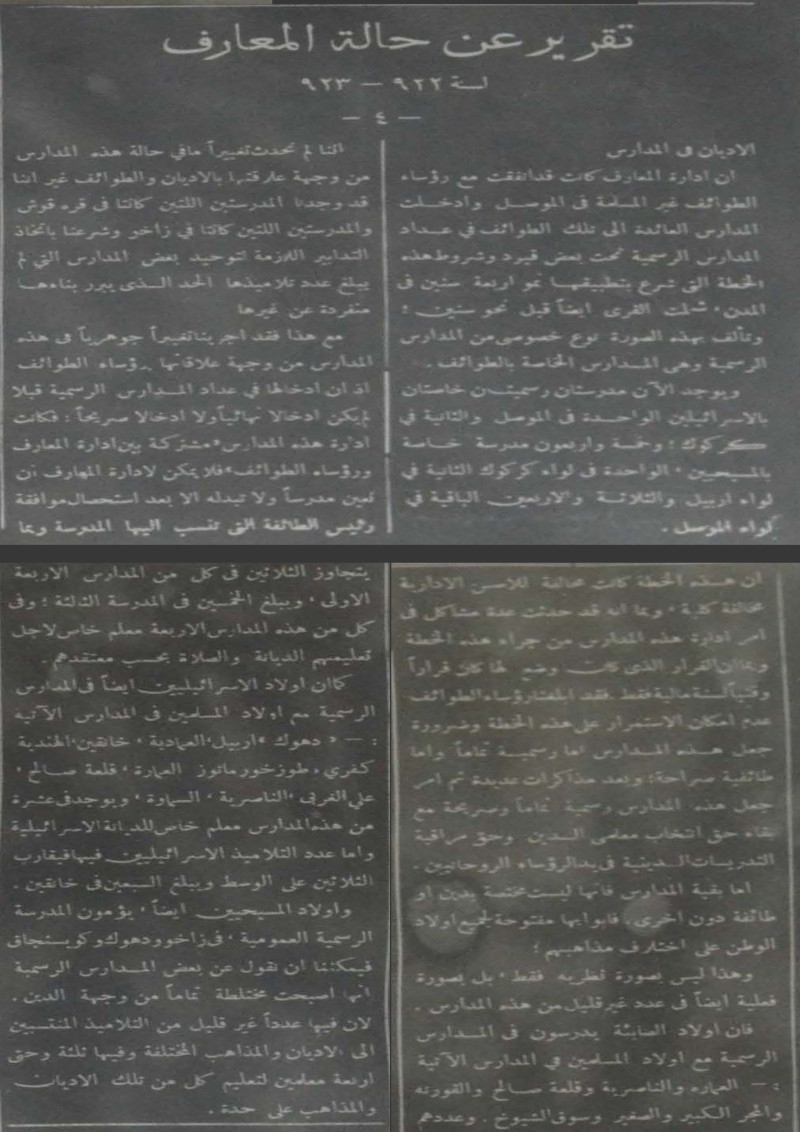 تقرير عن حالة المعارف
لسنة ٩٢٢ — ٩٢٣
— ٤ —
الاديان فى المدارس
ان ادارة المعارف كانت قد اتفقت مع رؤساء
الطوائف غير المسلمة فى الموصل وادخلت
المدارس العائدة الى تلك الطوائف في عداد
المدارس الرسمية تحت بعض قيود وشروط هذه
الخطة التى شرع بتطبيقها نحو اربعة سنين فى
المدن، شملت القرى ايضاً قبل نحو سنتين ؛
وتألف بهذه الصورة نوع خصوصى من المدارس
الرسمية وهى المدارس الخاصة بالطوائف .
ويوجد الآن مدرستان رسميتان خاصتان
بالاسرائيلين الواحدة فى الموصل والثانية في
كركوك ؛ وخمسة واربعون مدرسة خاصة
بالمسيحيين ، الواحدة فى لواء كركوك الثانية في
لواء اربيل والثلاثة والاربعين الباقية في
لواء الموصل .
اننا لم نحدث تغييراً ما في حالة هذه المدارس
من وجهة علاقتها بالاديان والطوائف غير اننا
قد وجدنا المدرستين اللتين كانتا فى قره قوش
والمدرستين اللتين كانتا في زاخو وشرعنا باتخاذ
التدابير اللازمة لتوحيد بعض المدارس التي لم
يبلغ عدد تلاميذها الحد الذى يبرر بناءها
منفردة عن غيرها
مع هذا فقد اجرينا تغييراً جوهرياً فى هذه
المدارس من وجهة علاقاتها برؤساء الطوائف
اذ ان ادخالها فى عداد المدارس الرسمية قبلا
لم يكن ادخالا نهائياً ولا ادخالا صريحاً : فكانت
ادارة هذه المدارس مشتركة بين ادارة المعارف
ورؤساء الطوائف، فلا يمكن لادارة المعارف ان
تعين مدرساً ولا تبدله الا بعد استحصال موافقة
رئيس الطائفة التى تنسب اليها المدرسة وبما
ان هذه الخطة كانت مخالفة للاسس الادارية
مخالفة كلية ، وبما انه قد حدثت عدة مشاكل فى
امر ادارة هذه المدارس من جراء هذه الخطة
وبما ان القرار الذى كان وضع لها كان قراراً
وقتياً لسنة مالية فقط فقد رؤساء الطوائف
عدم امكان الاستمرار على هذه الخطة وضرورة
جعل هذه المدارس اما رسمية تماماً واما
طائفية صراحة ؛ وبعد مذاكرات عديدة تم امر
جعل هذه المدارس رسمية تماماً وصريحة مع
بقاء حق انتخاب معلمى الدين وحق مراقبة
التدريسات الدينية فى يد الرؤساء الروحانيين .
اما بقية المدارس فانها ليست مختصة بدين او
طائفة دون اخرى، فابوابها مفتوحة لجميع اولاد
الوطن على اختلاف مذاهبهم ؛
وهذا ليس بصورة نظرية فقط ، بل بصورة
فعلية ايضاً فى عدد غير قليل من هذه المدارس .
فان اولاد الصابئة يدرسون فى المدارس
الرسمية مع اولاد المسلمين في المدارس الآتية
: — العماره والناصرية وقلعة صالح والقورنه
والمجر الكبير والصغير وسوق الشيوخ . وعددهم
يتجاوز الثلاثين فى كل من المدارس الاربعة
الاولى ، ويبلغ الخمسين فى المدرسة الثالثة ؛ وفى
كل من هذه المدارس الاربعة معلم خاص لاجل
تعليمهم الديانة والصلاة بحسب معتقدهم .
كما ان اولاد الاسرائيليين ايضاً فى المدارس
الرسمية مع اولاد المسلمين فى المدارس الآتيه
: — دهوك ، اربيل، العمادية ، خانقين، الهندية
كفري ، طوزخورماتوز العمارة ، قلعة صالح ،
على الغربى ، الناصرية ، السماوة ، ويوجد فى عشرة
من هذه المدارس معلم خاص للديانة الاسرائيلية
واما عدد التلاميذ الاسرائيليين فيها فيقارب
الثلاثين على الوسط ويبلغ السبعين فى خانقين .
واولاد المسيحيين ايضاً ، يؤمون المدرسة
الرسمية العمومية ، فى زاخو ودهوك وكويسنجاق
فيمكننا ان نقول عن بعض المدارس الرسمية
انها اصبحت مختلطة تماماً من وجهة الدين .
لان فيها عدداً غير قليل من التلاميذ المنتسبين
الى الاديان والمذاهب المختلفة وفيها ثلثة وحتى
اربعة معلمين لتعليم كل من تلك الاديان
والمذاهب على حدة .